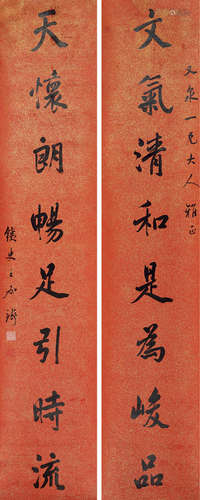 文氣清和是為峻品
又泉一兄大人雅正
天懷朗暢足引時流